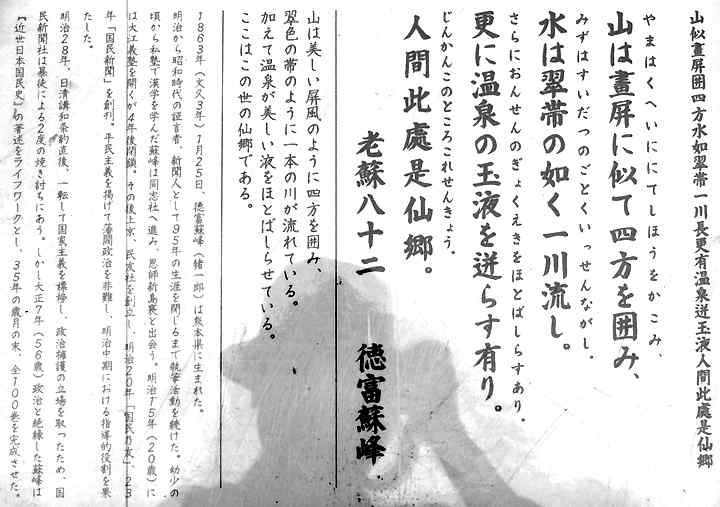 山似畫屏囲四方水如翠帯一川長更有温泉迸玉液人間此處是仙郷
やまはくへいににてしほうをかこみ、
山は畫屏に似て四方を囲み、
みずはすいだつのごとくいっせんながし。
水は翠帯の如く一川流し。
さらにおんせんのぎょくえきをほとばしらすあり。
更に温泉の玉液を迸らす有り。
じんかんこのところこれせんきょう。
人間此處是仙郷。
老蘇八十二
徳富蘇峰
山は美しい屏風のように四方を囲み、
翠色の帯のように一本の川が流れている。
加えて温泉が美しい液をほとばしらせている。
ここはこの世の仙郷である。
1863年（文久3年）1月25日、徳富蘇峰（猪一郎）は熊本県に生まれた。
明治から昭和時代の証言者、新聞人として95年の生涯を閉じるまで執筆活動を続けた。幼少の
頃から私塾で漢学を学んだ蘇峰は同志社へ進み、恩師新島襄と出会う。明治15年（20歳）に
は大江義塾を開くが4年後閉鎖。その後上京、民友社を創立し、明治20年「国民乃友」、23
年「国民新聞」を創刊。平民主義を掲げて藩閥政治を非難し、明治中期における指導的役割を果
たした。
明治28年、日清講和条約直後、一転して国家主義を標榜し、政治擁護の立場を取ったため、国
民新聞社は暴徒による2度の焼き討ちにあう。しかし大正7年（56歳）政治と絶縁した蘇峰は
『近世日本国民史』の著述をライフワークとし、35年の歳月の末、全100巻を完成させた。